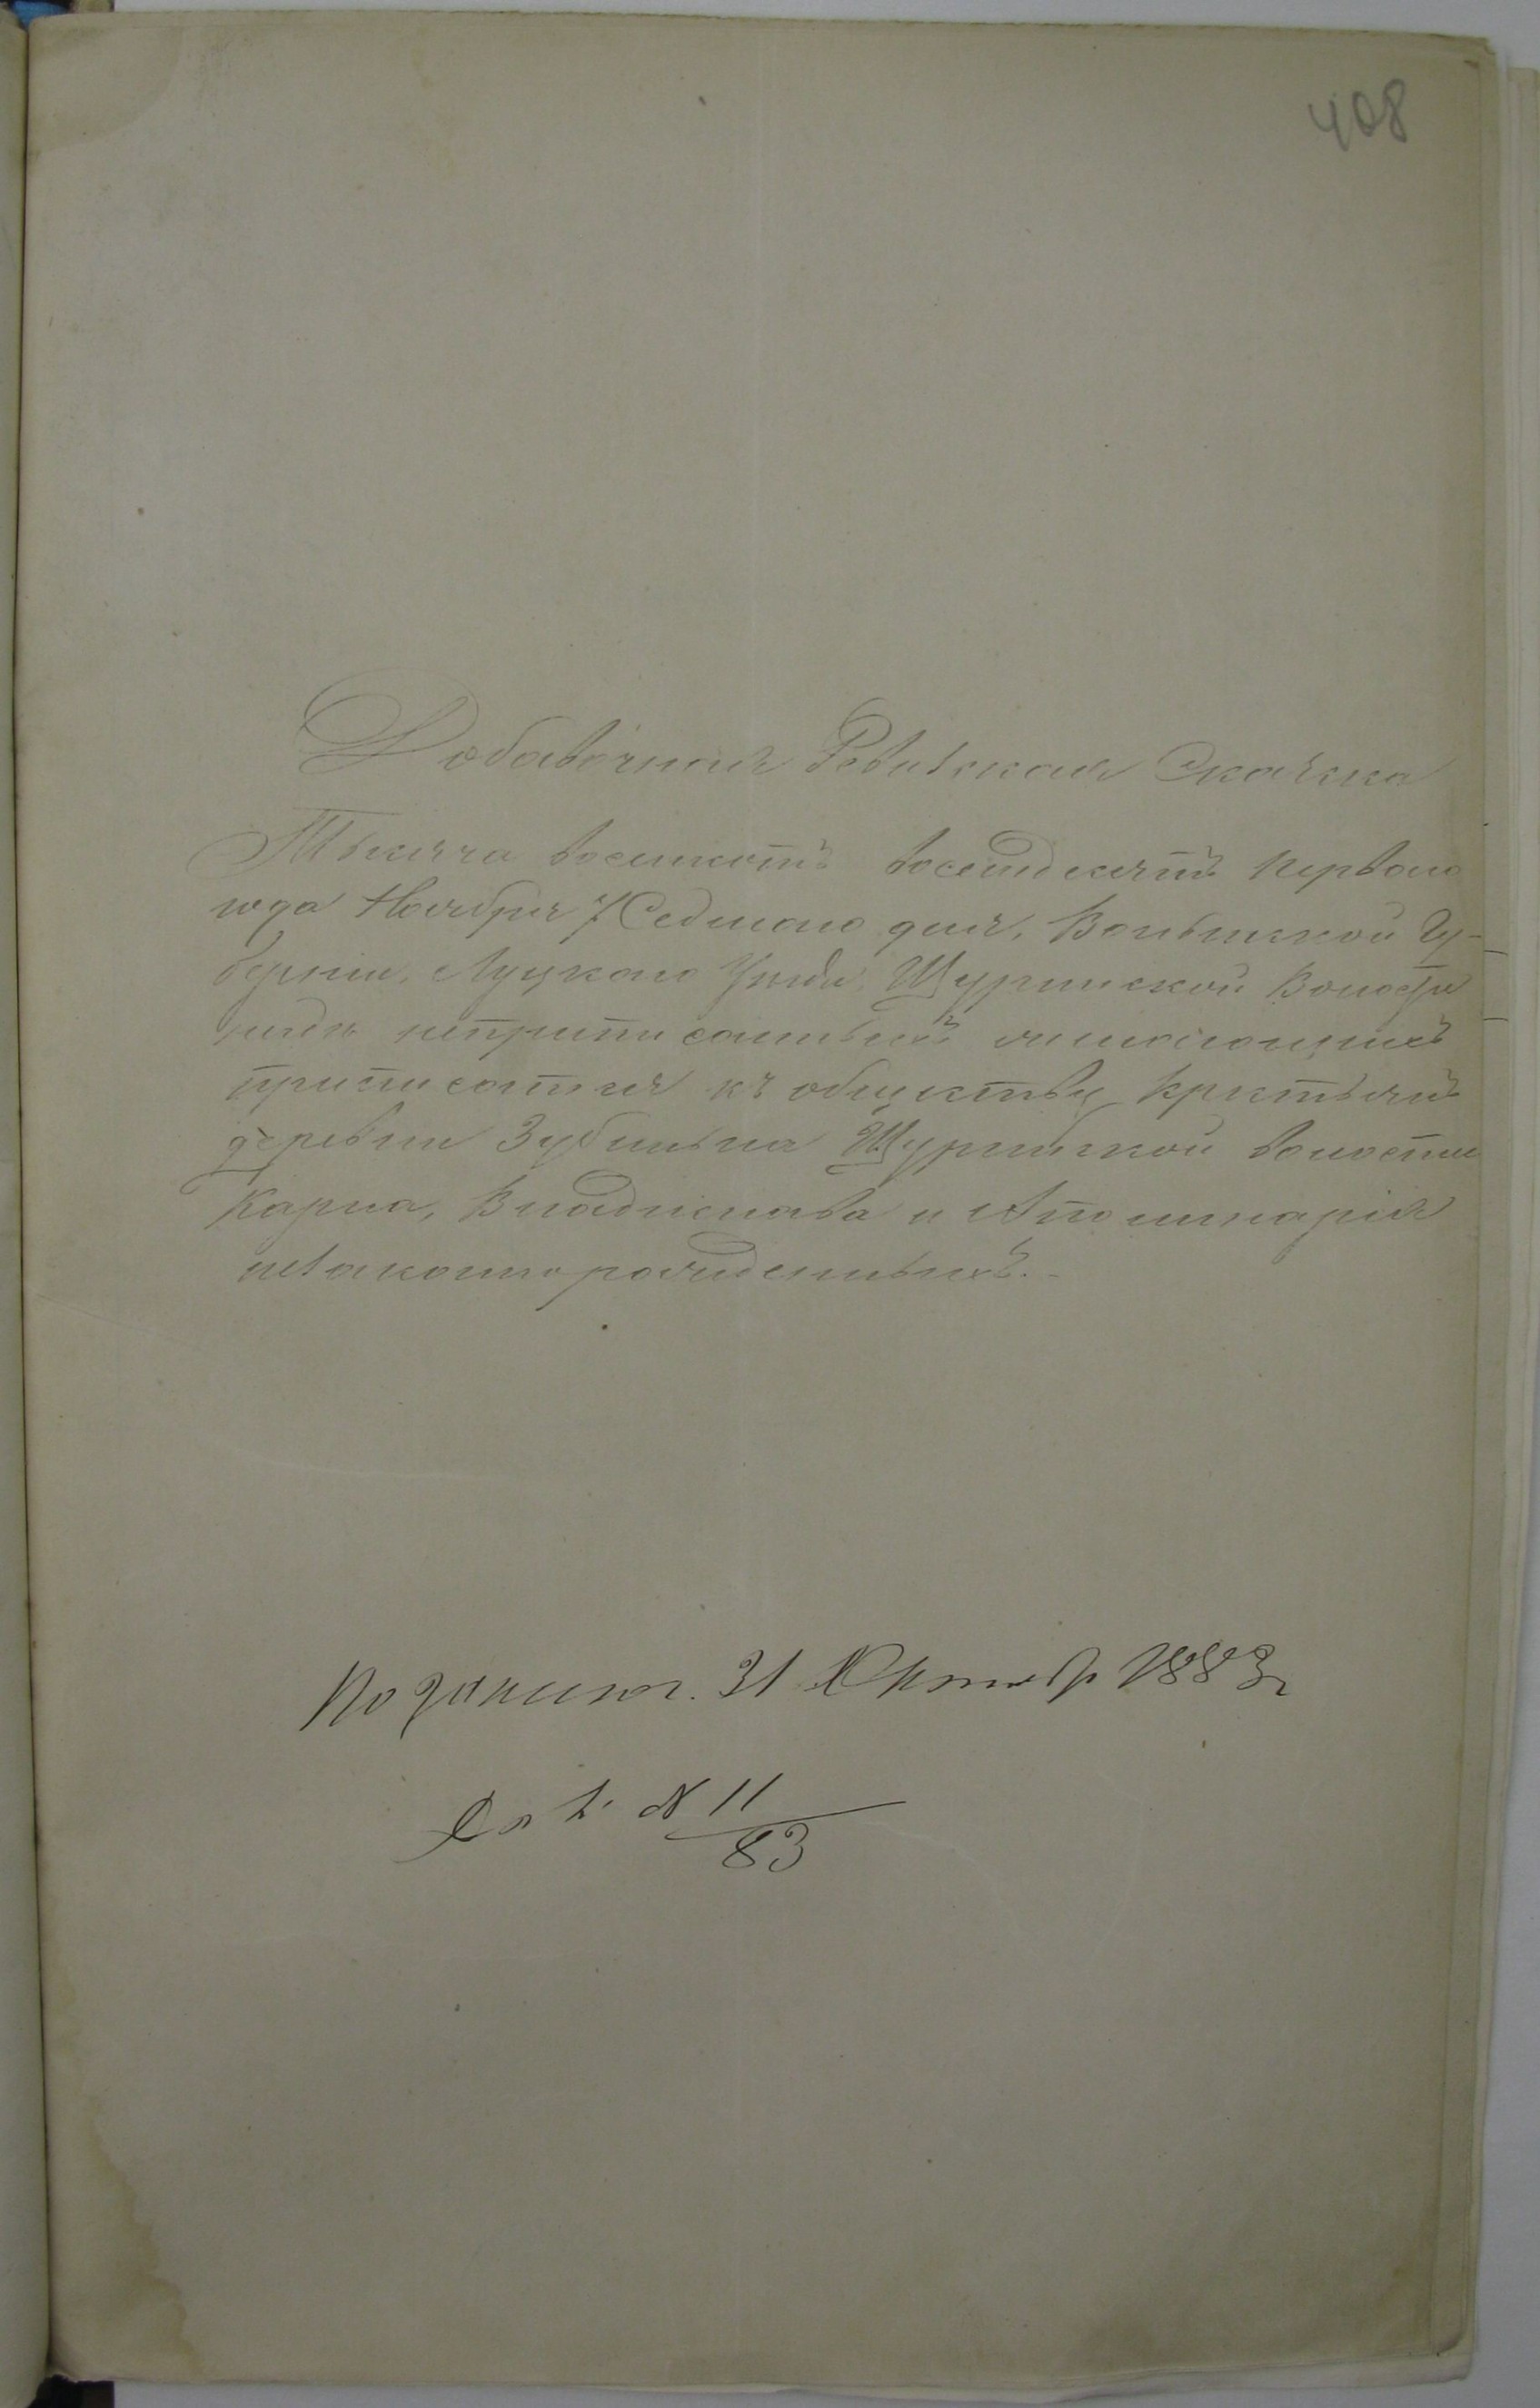 408
Добавочная Ревизская Сказка
Тысяча восемьсотъ восемдесятъ перваго
года Ноября 7 Седмаго дня, Волынской Гу-
берніи, Луцкаго Уѣзда, Щуринской Волости
неприписанныхъ желающихъ
приписатся къ обществу крестьянъ
деревни Зубильна Щуринской волости
Карпа, Владислава и Аполинарія
незаконнорожденныхъ.
31 Октябр 1883 г
№ 11/83